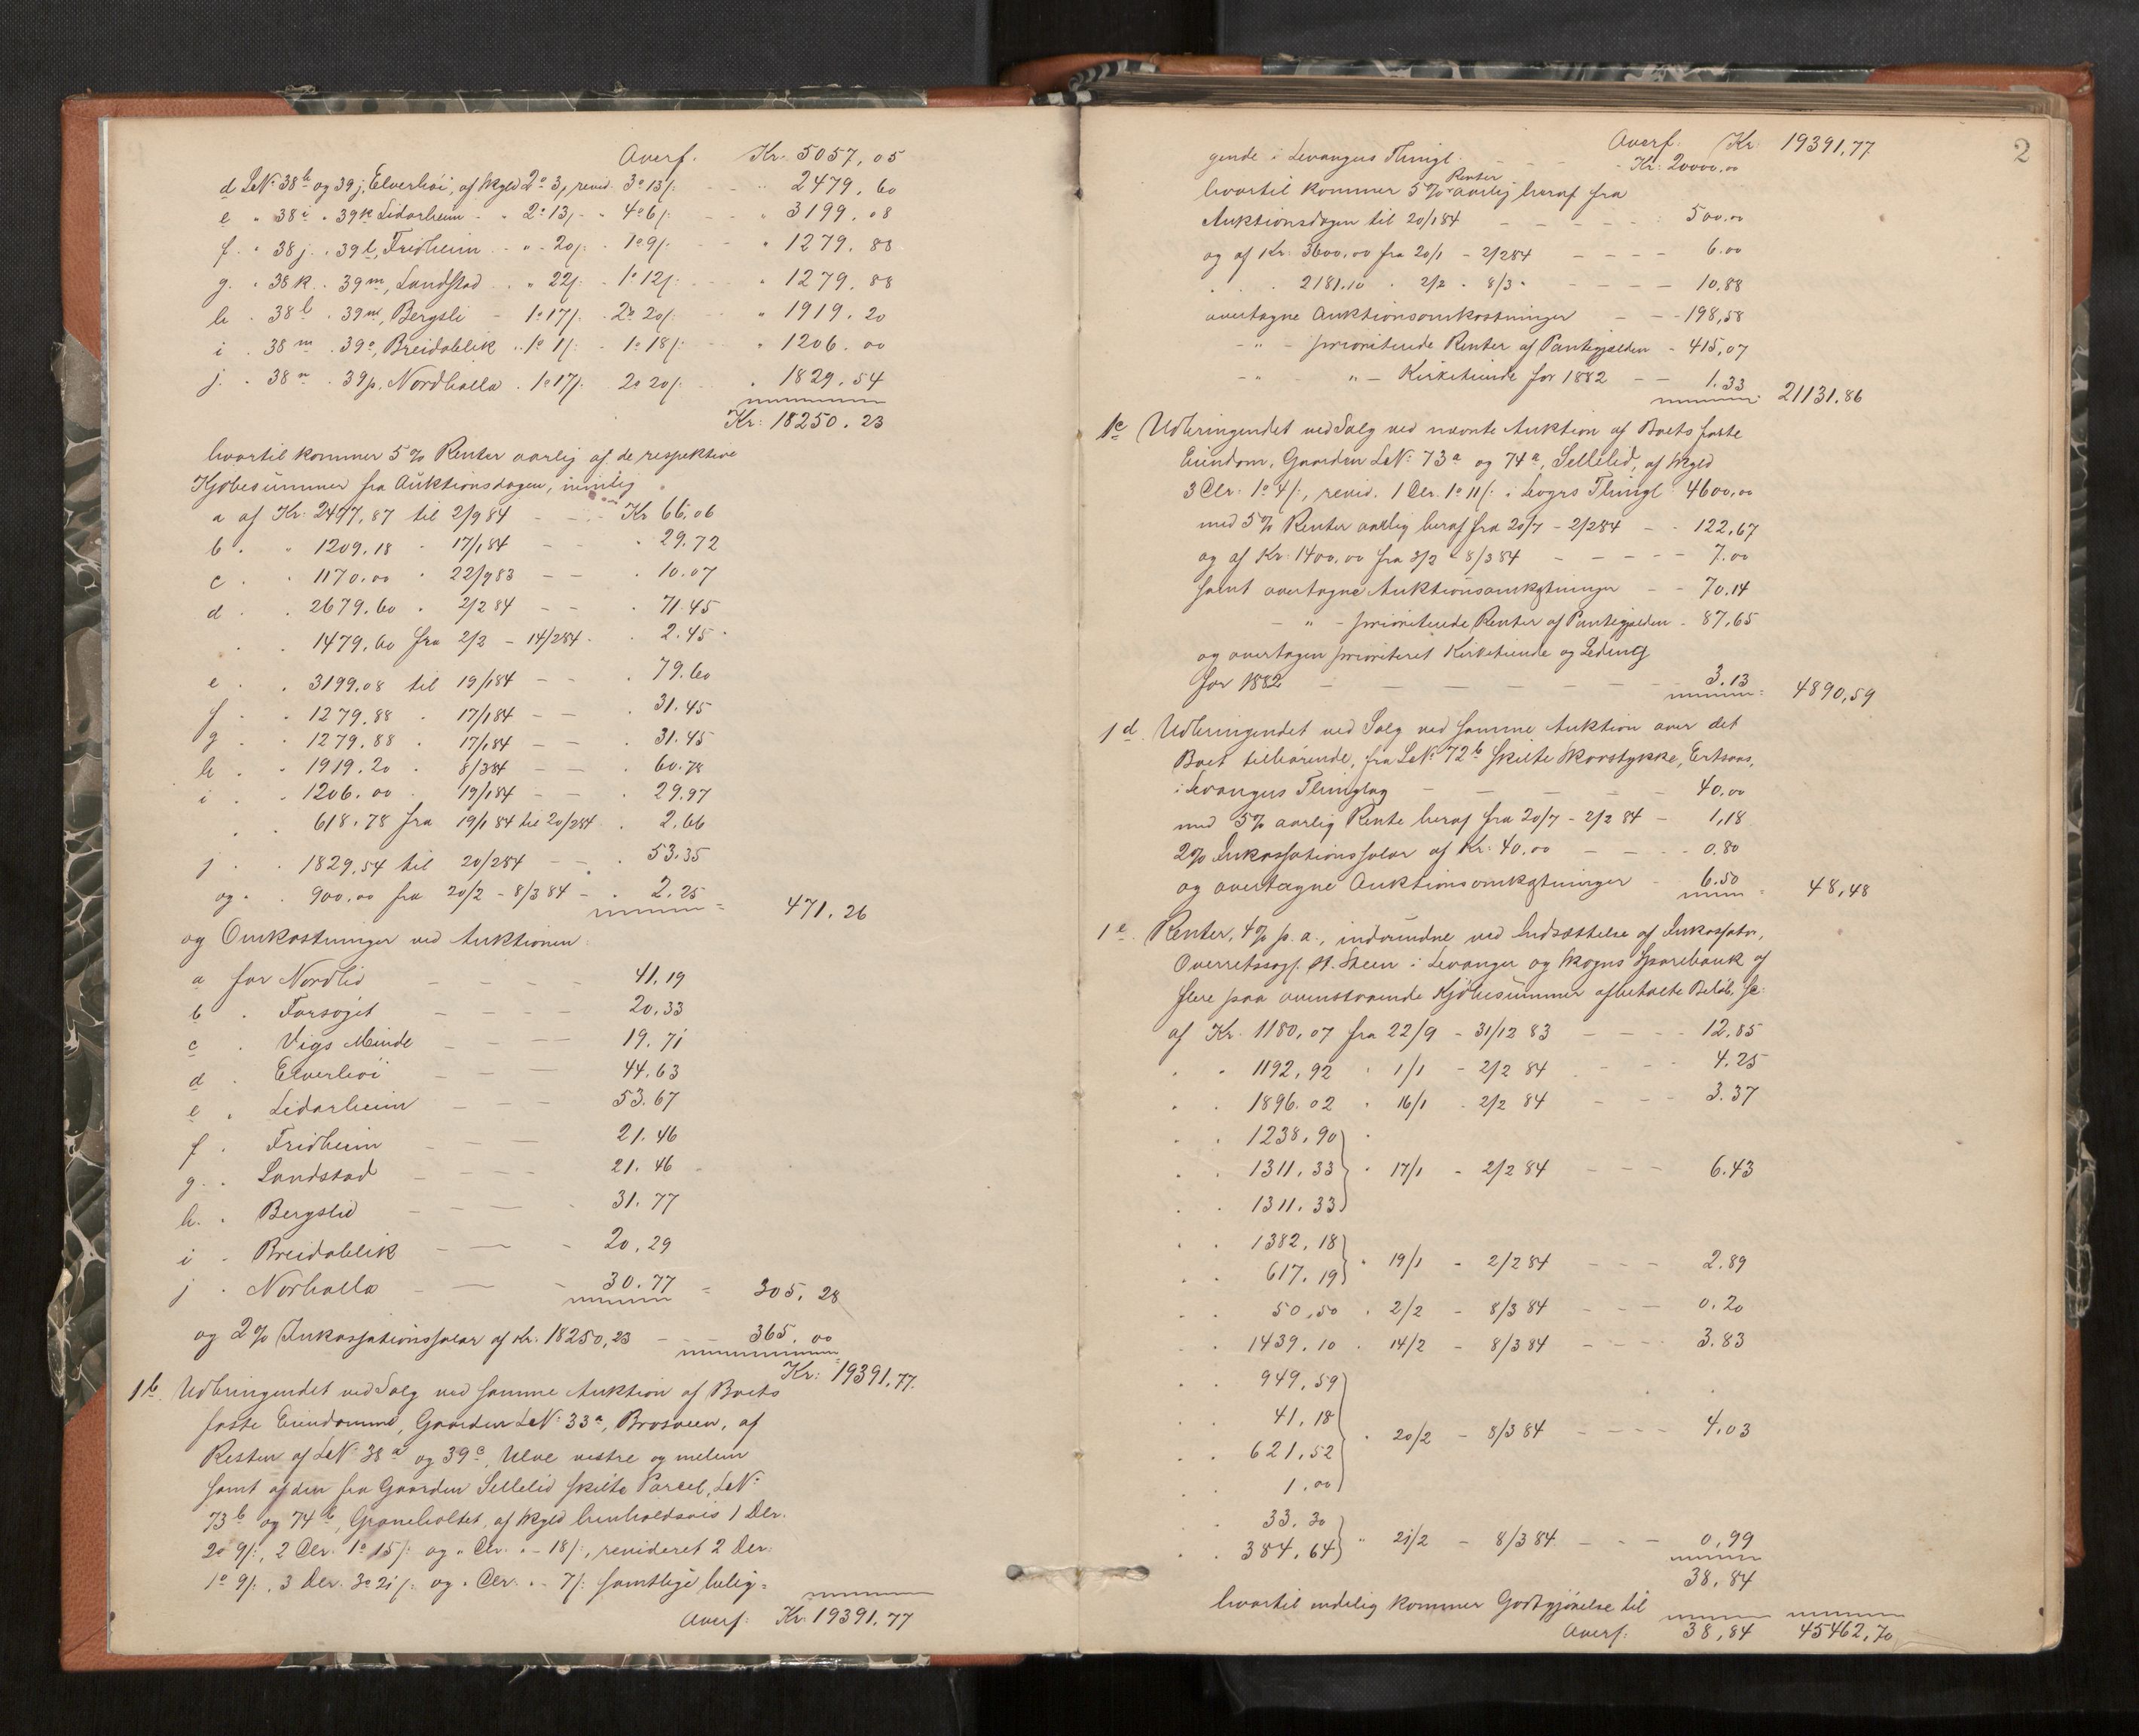 Overf. Kr. 5057,05
d LeNo 38h og 39j, Elverhöi, af Skyld 2o 3, revid. 3o 13/: " 2479,60
e " 38i " 39k Lidarheim - " 2o 13/: - " 4o 6/: " 3199.08
f. " 38j. " 39l, Fridheim - " - 20/: - 1o 9/: - - " 1279.88
g. " 38k. 39m, Landstad " 22/: - 1o 12/: " 1279.88
h. 38l. 39n, Bergsli - 1o 17/: - 2o 20/: " 1919.20
i. 38m. 39o, Breidablik. 1o 1/: - 1o 18/: " 1206.00
j. " 38n. 39p, Nordhalla. 1o 17/: 2o 20/: " 1829.54
Kr: 18250.23
hvortil kommer 5% Renter aarlig af de respektive
Kjöbesummer fra Auktionsdagen, nemlig
a af Kr: 2477,87 til 2/2 84 - - Kr 66.06
b. " 1209.18 " 17/1 84 - - " 29.72
c. " 1170.00 " 22/9 83 - - " 10.07
d. 2679.60 . 2/2 84 - - 71.45
. . 1479.60 fra 2/2 - 14/2 84 . 2.45
e . . 3199.08 til 19/1 84 - - . 79.60
f . . 1279.88 . 17/1 84 - - . 31.45
g . . 1279.88 . 17/1 84 - - . 31.45
h . . 1919.20 . 8/3 84 - - . 60.78
i . . 1206.00 . 19/1 84 - - . 29.97
. . 618.78 fra 19/1 84 til 20/2 84 . 2.66
j . . 1829.54 til 20/2 84 - - . 53.35
og . . 900.00 fra 20/2 - 8/3 84 - . 2.25 = 471.26
og Omkostninger ved Auktionen:
a for Nordlid - - - - 41.19
b . Forsöget - - - - 20.33
c . Vigs Minde - - - 19.71
d . Elverhöi - - - 44.63
e . Lidarheim - - - 53.67
f . Fridheim - - - 21.46
g . Landstad - - - - 21.46
h. . Bergslid - - - - 31.77
i . Breidablik - - - 20.29
j . Norhalla - - - 30.77 = 305.28
og 2% Inkassationssalar af Kr. 18250,23 - - - 365.00
Kr: 19391.77.
1b. Udbringendet ved Salg ved samme Auktion af Boets
faste Eiendomme, Gaarden LeNo 33a, Brosveen, af
Resten af LeNo 38a og 39c, Ulve vestre og melem
samt af den fra Gaarden Sellelid skilte Parcel, LeNo
73b og 74b, Graneholtet, af Skyld henholdsvis 1 Dlr.
2o 9/:, 2 Dlr. 1o 15/: og " Dlr. " - 18/:, revideret 2 Dlr.
1o 9/:, 3 Dlr. 3o 21/: og " Dlr. " - 7/: samtlige belig-
Overf: Kr. 19391.77
2
Overf. Kr. 19391,77
gende i Levangers Thingl. - - - - Kr. 20000,00
hvortil kommer 5% Renter aarlig heraf fra
Auktionsdagen til 20/1 84 - - - - - 500.00
og af Kr. 3600.00 fra 20/1 - 2/2 84 - - - - 6.00
. . . 2181.10 . 2/2 - 8/3 " - - - - 10.88
overtagne Auktionsomkostninger - - - 198,58
- " - prioriterede Renter af Pantegjælden - 415,07
- " " - Kirketiende for 1882 - - 1.33 = 21131.86
1c Udbringendet ved Salg ved nævnte Auktion af Boets faste
Eiendom, Gaarden LeNo 73a og 74a, Sellelid, af Skyld
3 Dlr. 1o 4/:, revid. 1 Dlr. 1o 11/: i Levgrs Thingl. 4600,00
med 5% Renter aarlig heraf fra 20/7 - 2/2 84 - - 122,67
og af Kr. 1400.00 fra 2/2 - 8/3 84 - - - - 7.00
samt overtagne Auktionsomkstninger - - 70.14
- " - prioriterede Renter af Pantegjælden - 87,65
og overtagen prioriteret Kirketiende og Leding
for 1882 - - - - - - 3.13 = 4890,59
1d Udbringendet ved Salg ved samme Auktion over det
Boet tilhörende, fra LeNo 72b skilte Skovstykke, Ertsaas,
i Levangers Thinglag - - - - - 40.00
med 5% aarlig Rente heraf fra 20/7 - 2/2 84 - 1,18
2% Inkassationssalar af Kr. 40.00 - - - - 0.80
og overtagne Auktionsomkstninger - 6.50 = 48,48
1e. Renter, 4% p. a., indvundne ved Indsættelse af Inkassator,
Overretssagf. Steen i Levanger og Skogns Sparebank af
flere paa ovenstaaende Kjöbesummer afbetalte Belöb, se:
af Kr. 1180,07 fra 22/9 - 31/12 83 - - - - 12.85
. . 1192,92 . 1/1 - 2/2 84 - - - 4.25
. . 1896.02 . 16/1 - 2/2 84 - - - 3.37
. . 1238,90
. . 1311,33 . 17/1 - 2/2 84 - - - 6.43
. . 1311.33
. . 1382,18
. . 617.19 . 19/1 - 2/2 84 - - - 2.89
. . 50,50 . 2/2 - 8/3 84 - - - 0.20
. . 1439.10 . 14/2 - 8/3 84 - - - - 3.83
. . 949,59
. . 41,18
. . 621,52 . 20/2 - 8/3 84 - - - - 4.03
. . 1.00
. . 33.30
. . 384.64 " 21/2 - 8/3 84 - - - 0,99
38,84
hvortil endelig kommer Godtgjörelse til
Overf: 38,84 45462,70